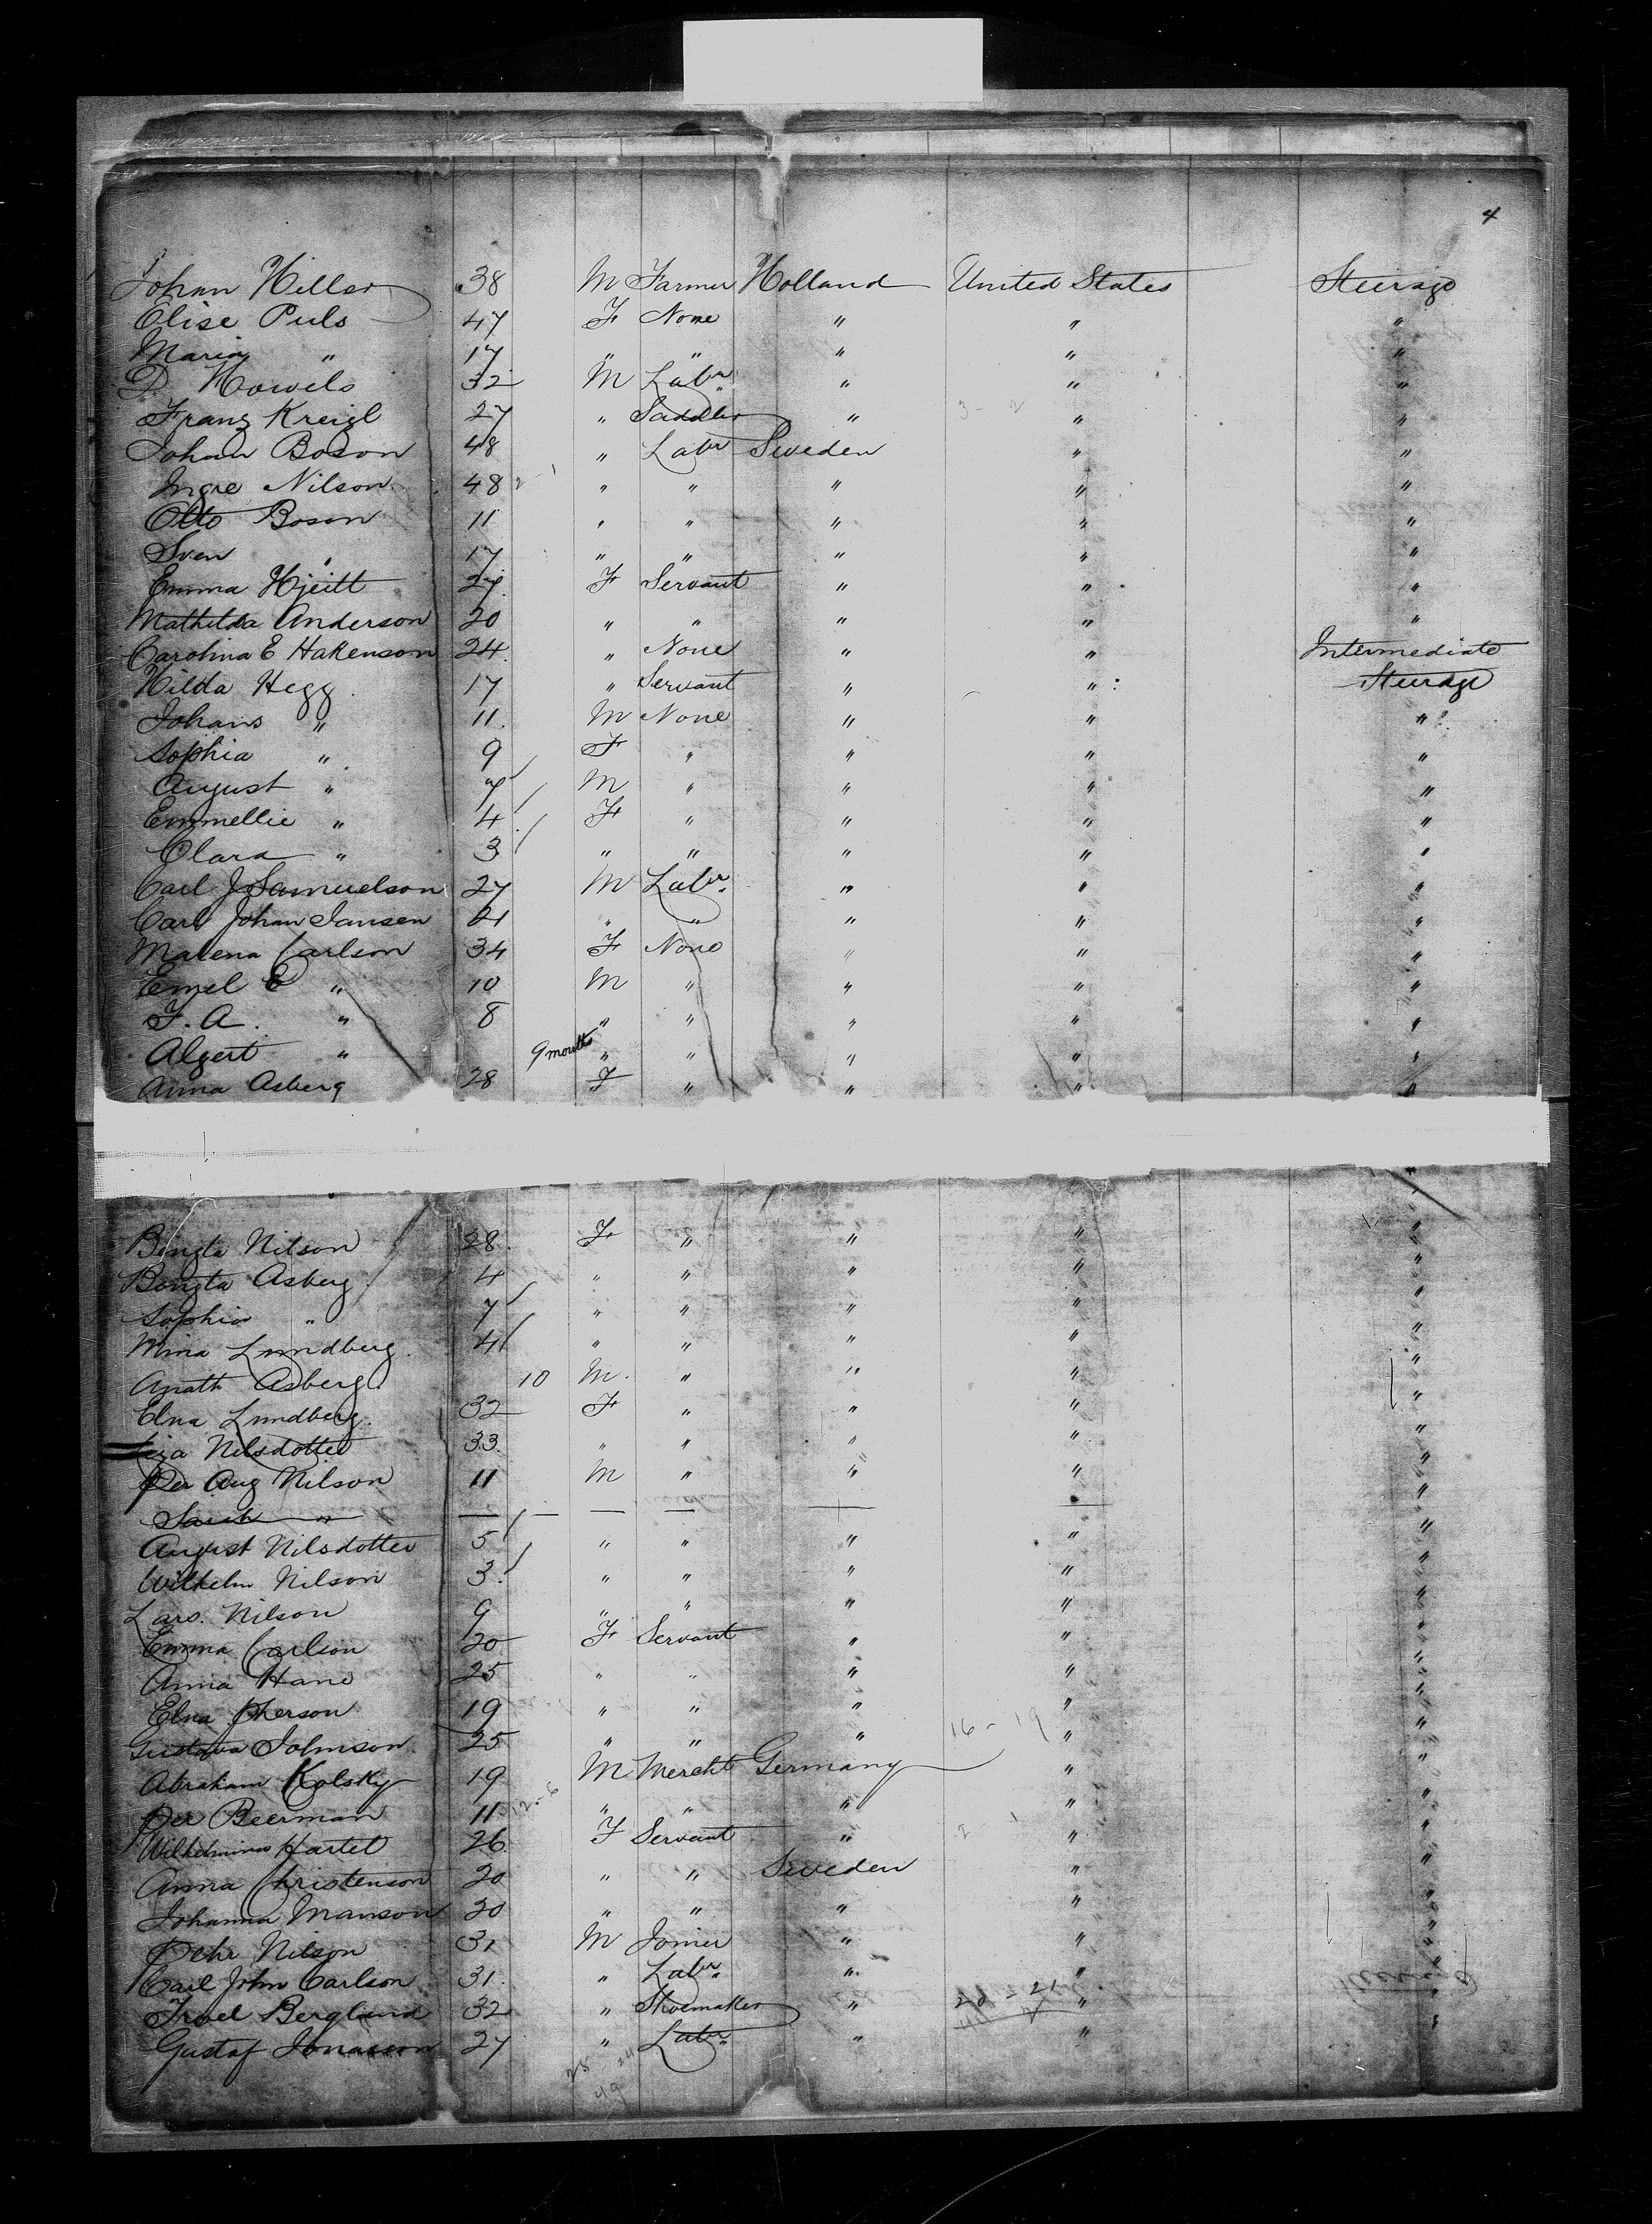 4
Johan Hiller 38 M Farmer Holland United States Steerage
Elise Puls 47 F None " " "
Maria " 17 " " " " "
D. Howels 32 M Labr " " "
Franz Kreigl 27 " Saddler " " "
Johan Boson 48 " Labr Sweden " "
Ingre Nilson 48 " " " " "
Otto Boson 11 " " " " "
Sven " 17 " " " " "
Emma Hjeitt 27 F Servant " " "
Mathilda Anderson 20 " " " " "
Carolina E Hakenson 24 " None " " Intermediate
Hilda Hegg 17 " Servant " " Steerage
Johans " 11 M None " " "
Sophia " 9 F " " " "
August " 7 M " " " "
Emmellie " 4 F " " " "
Clara " 3 " " " " "
Carl J Samuelson 27 M Labr " " "
Carl Johan Jansen 21 " " " " "
Malena Carlson 34 F None " " "
Emel E " 10 M " " " "
F. A. " 8 " " " " "
Algert " 9 months " " " " "
Anna Asberg 28 F " " " "
Bengta Nilson 28 F " " " "
Bengta Asberg 4 " " " " "
Sophia " 7 " " " " "
Mina Lundberg 4 " " " " "
Asberg 10 M " " " "
Elna Lundberg 32 F " " " "
Nilsdotter 33 " " " " "
Per Aug Nilson 11 M " " " "
" — — — — — — "
August Nilsdotter 5 " " " " "
Wilhelm Nilson 3 " " " " "
Lars. Nilson 9 " " " " "
Emma Carlson 20 F Servant " " "
Anna Hane 25 " " " " "
Elna Pherson 19 " " " " "
16 - 19
Gustava Johnson 25 " " " " "
Abraham Kolsky 19 M Mercht Germany " "
Per Beerman 11 12-6 " " " " "
Wilhelmina Hartel 26 F Servant " 2 - 1 " "
Anna Christenson 20 " " Sweden " "
Johanna Manson 20 " " " " "
Pehr Nilson 31 M Joiner " " "
Carl John Carlson 31 " Labr " " "
Berglund 32 " Shoemaker " " "
Gustaf Jonasson 27 " Labr " "
25 24
49